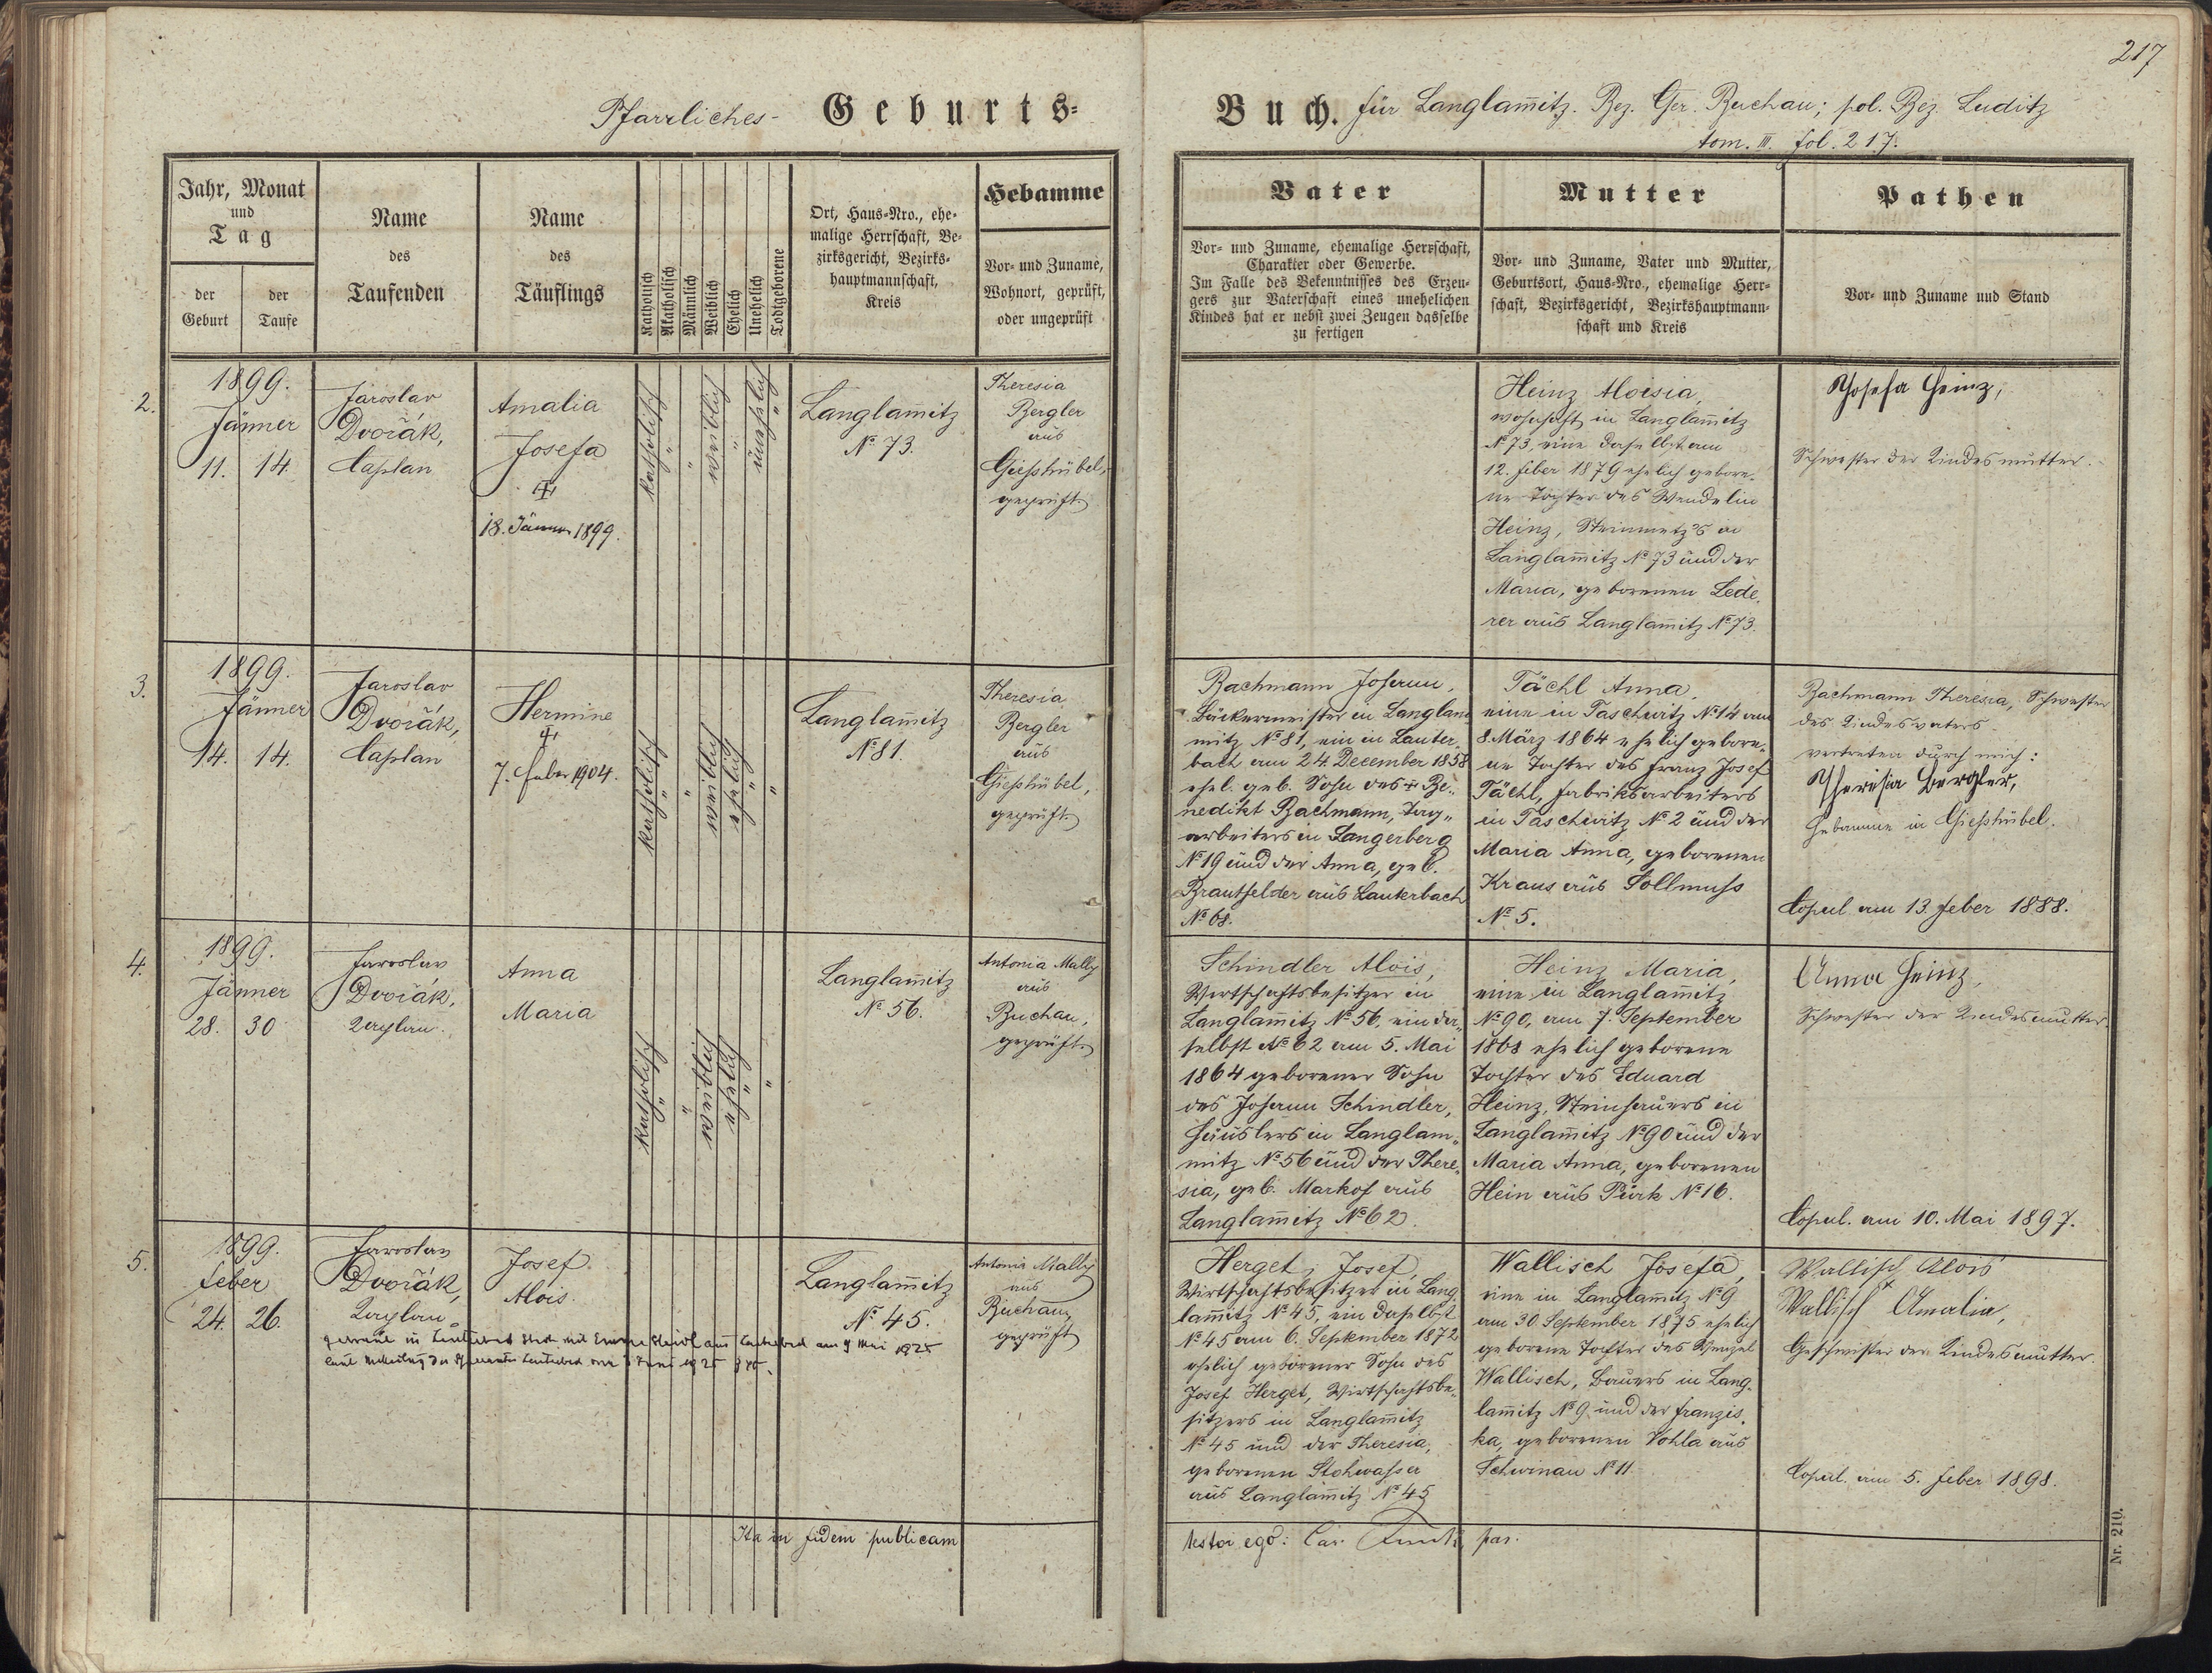 217
Pfarrliches- Geburts-
Buch. für Langlam̄itz. Bez. Ger. Buchau; pol. Bez. Luditz
tom. III. fol. 217.
Jahr, Monat
und
Tag
der Geburt
der Taufe
Name
des
Taufenden
Name
des
Täuflings
Katholisch
Akatholisch
Männlich
Weiblich
Ehelich
Unehelich
Todtgeborene
Ort, Haus-Nro., ehe-
malige Herrschaft, Be-
zirksgericht, Bezirks-
hauptmannschaft,
Kreis
Hebamme
Vor- und Zuname,
Wohnort, geprüft,
oder ungeprüft
Vater
Vor- und Zuname, ehemalige Herrschaft,
Charakter oder Gewerbe.
Im Falle des Bekenntnisses des Erzeu-
gers zur Vaterschaft eines unehelichen
Kindes hat er nebst zwei Zeugen dasselbe
zu fertigen
Mutter
Vor- und Zuname, Vater und Mutter,
Geburtsort, Haus-Nro., ehemalige Herr-
schaft, Bezirksgericht, Bezirkshauptmann-
schaft und Kreis
Pathen
Vor- und Zuname und Stand
2.
1899.
Jänner
11. 14.
Jaroslav
Dvořák,
Caplan
Amalia
Josefa
18. Jänner 1899.
katholisch
"
"
weiblich
"
unehelich
"
Langlam̄itz
№ 73.
Theresia
Bergler
aus
Giesshübel,
geprüft
Heinz Aloisia,
wohnhaft in Langlam̄itz
№ 73, eine daselbst am
12. Feber 1879 ehelich gebore-
ne Tochter des Wendelin
Heinz, Steinmetz's in
Langlam̄itz № 73 und der
Maria, geborenen Lede-
rer aus Langlam̄itz № 73.
Josefa Heinz,
Schwester der Kindesmutter.
3.
1899.
Jänner
14. 14.
Jaroslav
Dvořák,
Caplan
Hermine
7. Feber 1904.
katholisch
"
"
weiblich
ehelich
"
"
Langlam̄itz
№ 81.
Theresia
Bergler
aus
Giesshübel,
geprüft
Bachmann Johann,
Bäckermeister in Langlam-
mitz № 81, ein in Lauter-
bach am 24. December 1858
ehel. geb. Sohn des Be-
nedikt Bachmann, Tag-
arbeiters in Langerberg
№ 19 und der Anna, geb.
Brautfelder aus Lauterbach
№ 68.
Tächl Anna,
eine in Taschwitz № 14 am
8. März 1864 ehelich gebore-
ne Tochter des Franz Josef
Tächl, Fabriksarbeiters
in Taschwitz № 2 und der
Maria Anna, geborenen
Kraus aus Sollmuss
№ 5.
Bachmann Theresia, Schwester
des Kindesvaters
vertreten durch mich:
Theresia Bergler,
Hebamme in Giesshübel.
Copul. am 13. Feber 1888.
4.
1899.
Jänner
28. 30
Jaroslav
Dvořák,
Caplan.
Anna
Maria
katholisch
"
"
weiblich
ehelich
"
"
Langlam̄itz
№ 56.
Antonia Mally
aus
Buchau,
geprüft.
Schindler Alois,
Wirtschaftsbesitzer in
Langlam̄itz № 56, ein da-
selbst № 62 am 5. Mai
1864 geborener Sohn
des Johann Schindler,
Häuslers in Langlam-
mitz № 56 und der There-
sia, geb. Markof aus
Langlam̄itz № 62.
Heinz Maria,
eine in Langlam̄itz
№ 90, am 7. September
1868 ehelich geborene
Tochter des Eduard
Heinz, Steinhauers in
Langlam̄itz № 90 und der
Maria Anna, geborenen
Hein aus Pürk № 16.
Anna Heinz,
Schwester der Kindesmutter.
Copul. am 10. Mai 1897.
5.
1899.
Feber
24. 26.
Jaroslav
Dvořák,
Caplan
Josef
Alois.
getraut in Stadt mit aus am 9 Mai 1925
laut Mitteilung des Juni 1925
Langlam̄itz
№ 45.
Antonia Mally
aus
Buchau,
geprüft
Herget Josef,
Wirtschaftsbesitzer in Lang-
lam̄itz № 45, ein daselbst
№ 45 am 6. September 1872
ehelich geborener Sohn des
Josef Herget, Wirtschaftsbe-
sitzers in Langlam̄itz
№ 45 und der Theresia,
geborenen Stohwasser
aus Langlam̄itz № 45
Wallisch Josefa,
eine in Langlam̄itz № 9
am 30. September 1875 ehelich
geborene Tochter des Wenzel
Wallisch, Bauers in Lang-
lam̄itz № 9 und der Franzis-
ka, geborenen Vohla aus
Schwinau № 11.
Wallisch Alois
Wallisch Amalia,
Geschwister der Kindesmutter.
Copul. am 5. Feber 1898.
Ita in fidem publicam
testor ego: Car. par.
Nr. 210.